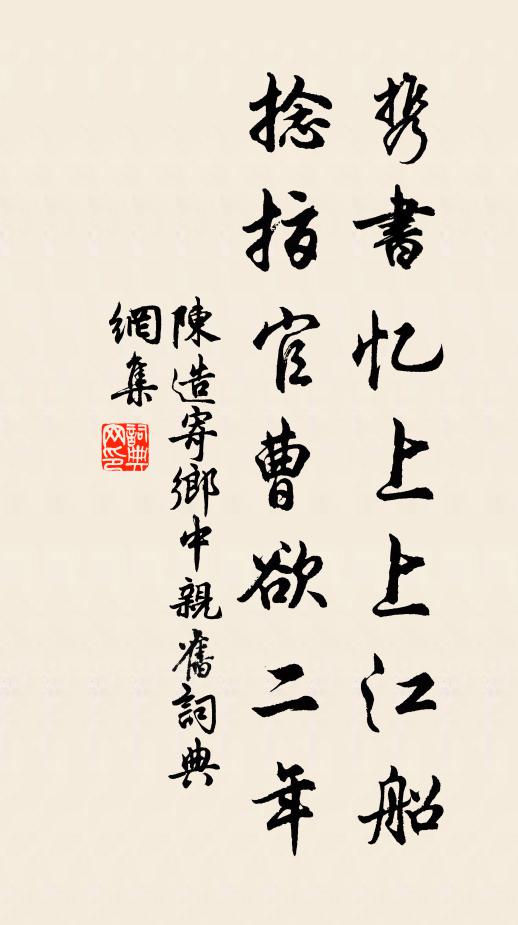 携書忆上上江船
捻指官曹欲二年
陳造寄鄉中親舊詞典
網集
詞典網印